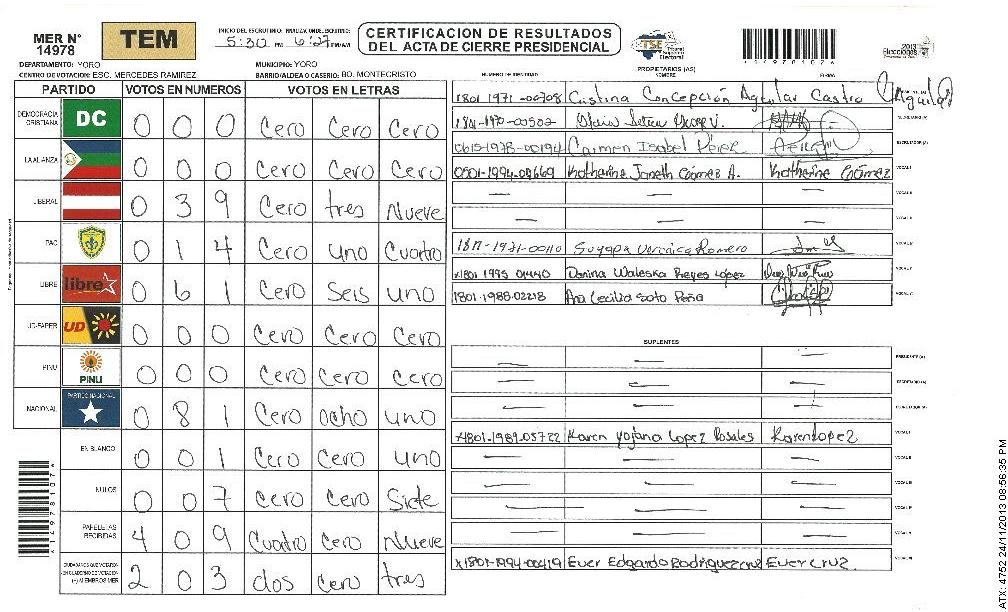 MER N° 14978
TEM
INICIO DEL ESCRUTINIO: FINALIZACION DE ESCRUTINIO:
5:30 PM 6:27 PM/AM
CERTIFICACION DE RESULTADOS
DEL ACTA DE CIERRE PRESIDENCIAL
TSE Tribunal Supremo Electoral
2013 Elecciones
DEPARTAMENTO: YORO MUNICIPIO: YORO
CENTRO DE VOTACION: ESC. MERCEDES RAMIREZ BARRIO/ALDEA O CASERIO: BO. MONTECRISTO
PARTIDO VOTOS EN NUMEROS VOTOS EN LETRAS
DEMOCRACIA CRISTIANA DC 0 0 0 Cero Cero Cero
LA ALIANZA 0 0 0 Cero Cero Cero
LIBERAL 0 3 9 Cero tres Nueve
PAC 0 1 4 Cero uno Cuatro
LIBRE libre 0 6 1 Cero Seis uno
UD-FAPER UD 0 0 0 Cero Cero Cero
PINU PINU 0 0 0 Cero Cero Cero
NACIONAL PARTIDO NACIONAL 0 8 1 Cero ocho uno
EN BLANCO 0 0 1 Cero Cero uno
NULOS 0 0 7 Cero Cero Siete
PAPELETAS RECIBIDAS 4 0 9 Cuatro Cero Nueve
CIUDADANOS QUE VOTARON EN CUADERNO DE VOTACION (+) MIEMBROS MER 2 0 3 dos cero tres
PROPIETARIOS (AS)
NUMERO DE IDENTIDAD NOMBRE FIRMA
1801-1971-00708 Cristina Concepción Aguilar Castro
SECRETARIO (A)
0615-1978-00194 Carmen Isabel Pérez
ESCRUTADOR (A)
0501-1994-09669 Katherine Janeth Gómez A. Katherine Gómez
VOCAL I
Suyapa Veronica Romero
1801 1995 01440 Danina Waleska Reyes López
1801-1988-02218 Ana Cecilia Soto Peña
SUPLENTES
PRESIDENTE (A)
SECRETARIO (A)
ESCRUTADOR (A)
1801-1989-03722 Karen Yojana Lopez Rosales Karen Lopez
VOCAL I
1801-1994-00419 Ever Edgardo Rodriguez Cruz Ever Cruz
149781076
ATX: 4752 24/11/2013 08:56:35 PM